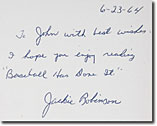 6-23-64
To John with best wishes
I hope you enjoy reading
"Baseball Has Done It"
Jackie Robinson